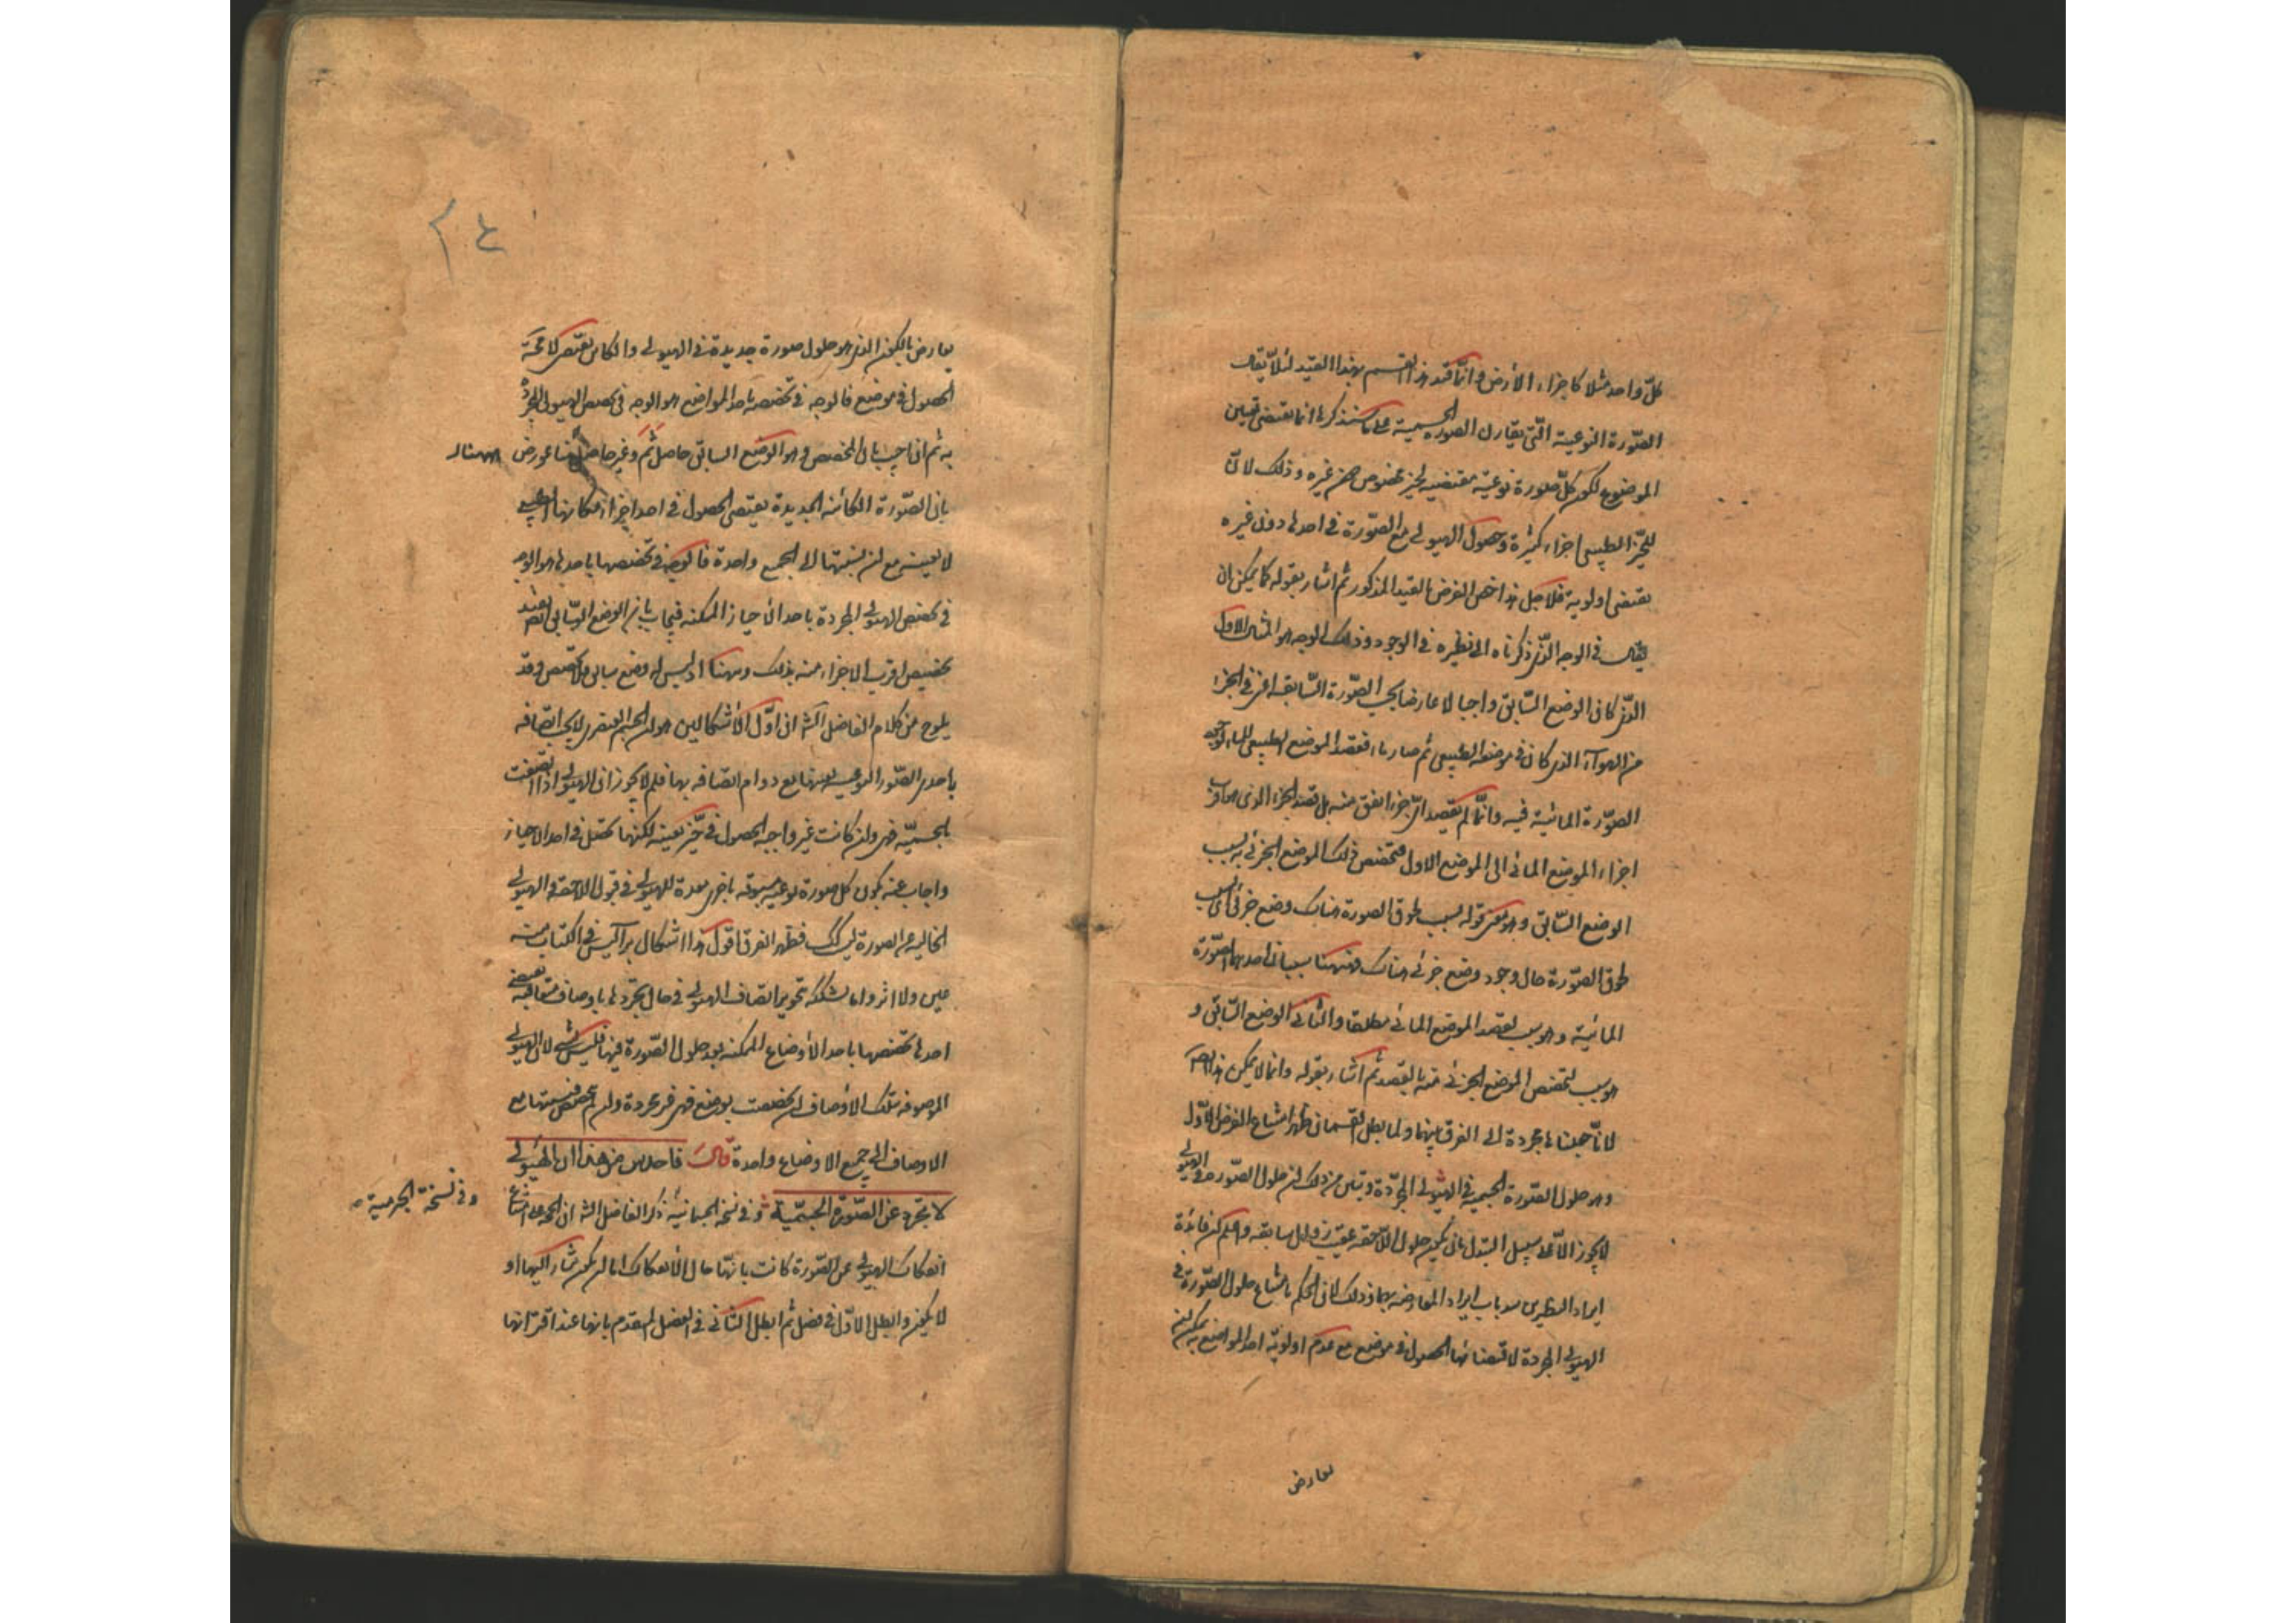 كلّ واحد مثلا كاجزاء الأرض وانّما قيد هذا القسم بهذا القيد لئلّا يقال
الصّورة النوعية الّتى يقارن الصورة الجسمية على ما سنذكرها انما يقتضى تعيين
الموضوع لكون كلّ صورة نوعية مقتضيه لحيز مخصوص دون غيره وذلك لانّ
للحيّز الطبيعى اجزاء كثيرة وحصول الهيولى مع الصّورة فى احدها دون غيره
يقتضى اولوية فلاجل هذا خص الفرض بالقيد المذكور ثم اشار بقوله كما يمكن ان
يقال فى الوجه الّذى ذكرناه الى نظيره فى الوجود وذلك الوجه هو المثال الاول
الّذى كان الوضع السّابق واجبا لا عارضا بحسب الصّورة السّابقه اعنى فى الجزء
من الهوآء الذى كان فى موضعه الطبيعى ثم صار ماء فقصد الموضع الطبيعى للماء
الصّورة المائية فيه وانّما لم يقصد اىّ جزء اتفق منه بل قصد الجزء الذى هو اقرب
اجزاء الموضع المائى الى الموضع الاول فتخصص ذلك الموضع الجزئى به بسبب
الوضع السّابق وهو معنى قوله بسبب لحوق الصورة هناك وضع جزئى اى بسبب
لحوق الصّورة حال وجود وضع جزئى هناك فههنا سببان احدهما الصّورة
المائية وهو سبب لقصد الموضع المائى مطلقا والثانى الوضع السّابق و
هو سبب لتخصص الموضع الجزئى منه بالقصد ثم اشار بقوله وانما لا يمكن هذا
لانّا جعلناها مجردة الى الفرق بينهما ولما بطل القسمان ظهر امتناع الفرض الاوّل
وهو حلول الصّورة الجسمية فى الهيولى المجرّدة وتبين من ذلك ان حلول الصّورة فى الهيولى
لا يجوز الّا على سبيل التبدل بان يكون حلول اللّاحقه عقيب زوال السابقه واعلم ان فائدة
ايراد النظيرين سد باب ايراد المعارضه بهما وذلك لان الحكم بامتناع حلول الصّورة فى
الهيولى المجردة لاقتضائها الحصول فى موضع مع عدم اولويّة احد المواضع به يمكن ان
يعارض
يعارض بالكون الذى هو حلول صورة جديدة فى الهيولى والكائن يقتضى لا محة
الحصول فى موضع فالوجه فى تخصصه باحد المواضع هو الوجه فى تخصص الهيولى المجردة
به ثم ان اجيب بان المخصص وهو الوضع السابق حاصل ثم وغير حاصل هنا عورض
بان الصّورة الكائنه الجديدة يقتضى الحصول فى احد اجزاء مكانها
لا بعينه مع ان نسبتها الى الجميع واحدة فالوجه فى تخصصها باحدها هو الوجه
فى تخصص الهيولى المجردة باحد الاحياز الممكنه فيجاب بان الوضع السّابق يفيد
تخصيص اقرب الاجزاء منه بذلك وههنا اذ ليس له وضع سابق ولا مخصص وقد
يلوح من كلام الفاضل الشّ ان اوّل الأشكالين هو ان الجسم العنصرى لا يجب اتصافه
باحدى الصّور النوعيه بعينها مع دوام اتصافه بها فلم لا يجوز ان الهيولى اذا اتصفت
بالجسميّه فهى وان كانت غير واجبه الحصول فى حيّز بعينه لكنها تحصل فى احد الاحياز
واجاب عنه بكون كل صورة نوعيه مسبوقه باخرى معدة للهيولى فى قبول اللاحقه والهيولى
الخاليه عن الصورة ليس كك فظهر الفرق اقول هذا اشكال برأسه ليس فى الكتاب منه
عين ولا اثر واما يشكك بتجويز اتصاف الهيولى فى حال تجردها باوصاف متعاقبه يقتضى
احدها تخصصها باحد الأوضاع الممكنه بعد حلول الصّورة فيها فليس بشئ لان الهيولى
الموصوفه بتلك الأوصاف ان تخصصت بوضع فهى غير مجردة وان لم تخصص فنسبتها مع
الاوصاف الى جميع الاوضاع واحدة قال فاحدس من هذا ان الهيولى
لا تجرد عن الصّورة الجسميّة وفى نسخة الجسمانية ذكر الفاضل الشّ ان الحجة على امتناع
وفى نسخة الجرمية
انفكاك الهيولى عن الصّورة كانت بانّها حال الأنفكاك اما ان يكون مشارا اليها او
لا يكون وابطل الاوّل فى فصل ثم ابطل الثّانى فى الفصل المتقدم بانها عند اقترانها